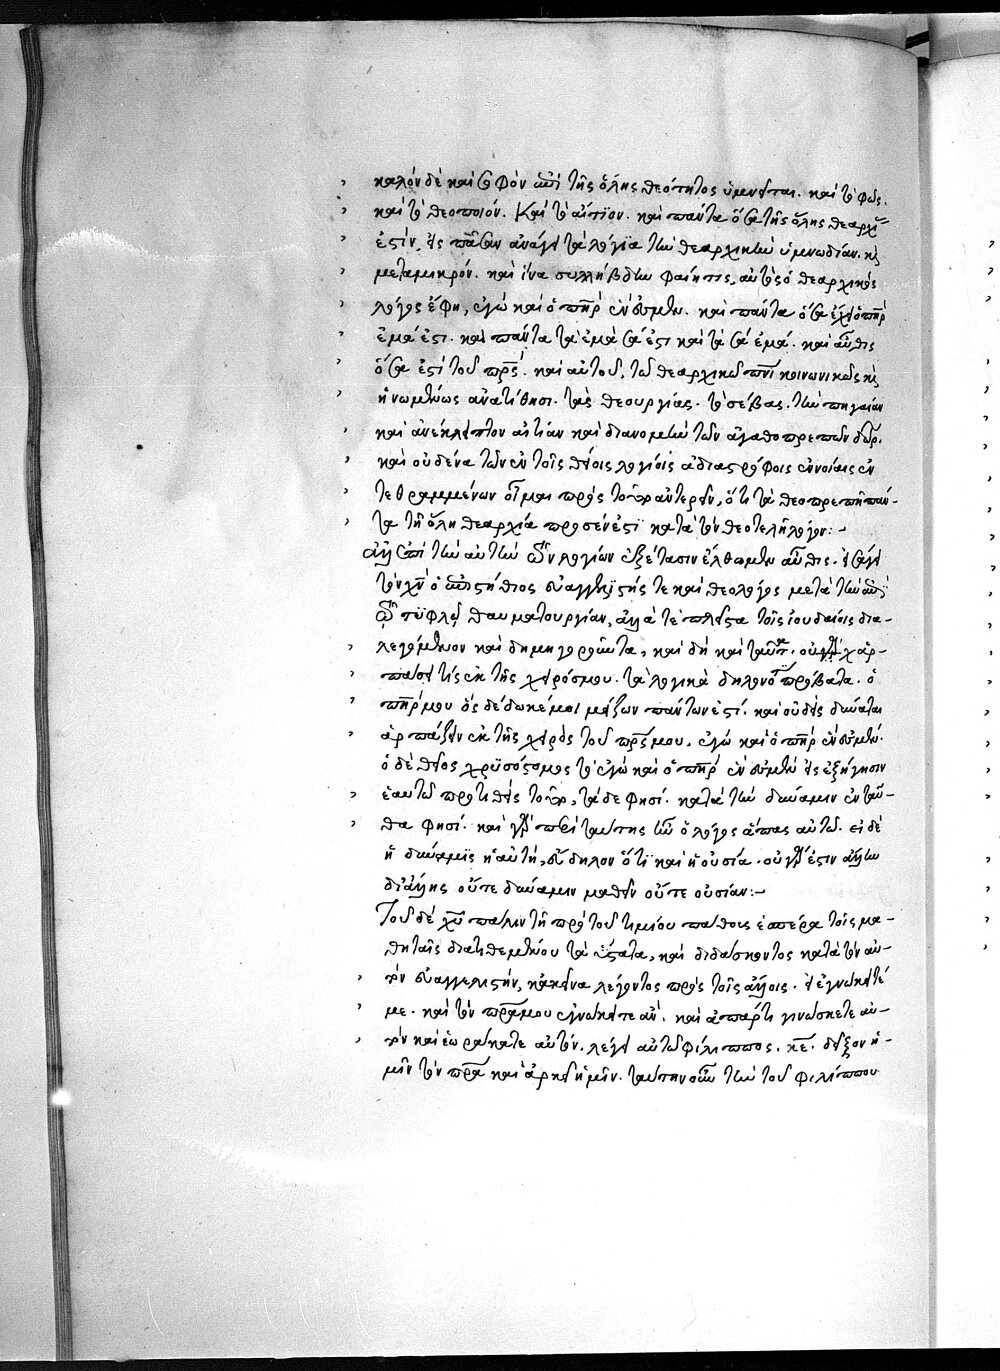 καλὸν δὲ καὶ σοφὸν ἐπὶ τῆς ὅλης θεότητος ὑμνεῖται. καὶ τὸ φῶς.
καὶ τὸ θεοποιόν. Καὶ τὸ αἴτιον. καὶ πάντα ὅσα τῆς ὅλης θεαρχί
ἐστὶν, εἰς πᾶσαν ἀνάγει τὰ λόγια τὴν θεαρχικὴν ὑμνωδίαν. κ
μεταμικρόν. καὶ ἵνα συλλήβδην φαίη τις, αὐτὸς ὁ θεαρχικὸς
λόγος ἔφη, ἐγὼ καὶ ὁ πηρ ἕν ἐσμεν. καὶ πάντα ὅσα ἔχει ὁ πηρ
ἐμά ἐστι. καὶ πάντα τὰ ἐμὰ σά ἐστι καὶ τὰ σὰ ἐμά. καὶ αὖθις
ὅσα ἐστὶ τοῦ πρς. καὶ αὐτοῦ, τῶ θεαρχικῶ πνι κοινωνικῶς κ
ἡνωμένως ἀνατίθησι. τὰς θεουργίας. τὸ σέβας. τὴν πηγαίαν
καὶ ἀνέκλειπτον αἰτίαν καὶ διανομὴν τῶν ἀγαθοπρεπῶν δωρ.
καὶ οὐδένα τῶν ἐν τοῖς θείοις λογίοις ἀδιαστρόφοις ἐννοίαις ἐν
τεθραμμένων οἶμαι πρὸς τοῦτο ἀντερεῖν, ὅτι τὰ θεοπρεπῆ πάν-
τα τῆ ὅλη θεαρχία πρόσεστι κατὰ τὸν θεοτελῆ λόγον:-
ἀλλ ἐπὶ τὴν αὐτὴν τῶν λογίων ἐξέτασιν ἔλθωμεν αὖθις. εἰσάγει
τὸν χν ὁ ἐπιστήθιος εὐαγγελιστής τε καὶ θεολόγος μετὰ τὴν
τοῦ τυφλοῦ θαυματουργίαν, ἄλλα τὲ πλεῖστα τοῖς ἰουδαίοις δια-
λεγόμενον καὶ δημηγοροῦντα, καὶ δὴ καὶ ταῦτα. οὐχ ἁρ-
πάσει τίς ἐκ τῆς χειρός μου. τὰ λογικὰ δηλονότι πρόβατα. ὁ
πηρ μου ὃς δέδωκέ μοι μείζων πάντων ἐστί. καὶ οὐδεὶς δύναται
ἁρπάζειν ἐκ τῆς χειρὸς τοῦ πρς μου. ἐγὼ καὶ ὁ πηρ ἕν ἐσμεν.
ὁ δὲ θεῖος χρυσόστομος τὸ ἐγὼ καὶ ὁ πηρ ἕν ἐσμεν εἰς ἐξήγησιν
ἑαυτῶ προτιθεὶς τοῦτο, τάδε φησί. κατὰ τὴν δύναμιν ἐνταῦ-
θα φησί. καὶ γὰρ περὶ ταύτης ἦν ὁ λόγος ἅπας αὐτῶ. εἰ δὲ
ἡ δύναμις ἡ αὐτή, εὔδηλον ὅτι καὶ ἡ οὐσία. οὐ γὰρ ἔστιν ἄλλην
δι ἄλλης οὔτε δύναμιν μαθεῖν οὔτε οὐσίαν:-
Τοῦ δὲ χυ πάλιν τῆ πρὸ τοῦ τιμίου πάθους ἑσπέρα τοῖς μα-
θηταῖς διατιθεμένου τὰ ὕστατα, καὶ διδάσκοντος κατὰ τὸν αὐ-
τὸν εὐαγγελιστὴν, κἀκεῖνα λέγοντος πρὸς τοῖς ἄλλοις. εἰ ἐγνώκειτέ
με. καὶ τὸν πρα μου ἐγνώκειτε ἄν. καὶ ἀπάρτι γινώσκετε αὐ-
τὸν καὶ ἑωράκατε αὐτόν. λέγει αὐτῶ φίλιππος. κε. δεῖξον ἡ-
μῖν τὸν πρα καὶ ἀρκεῖ ἡμῖν. ταύτην οὖν τὴν τοῦ φιλίππου